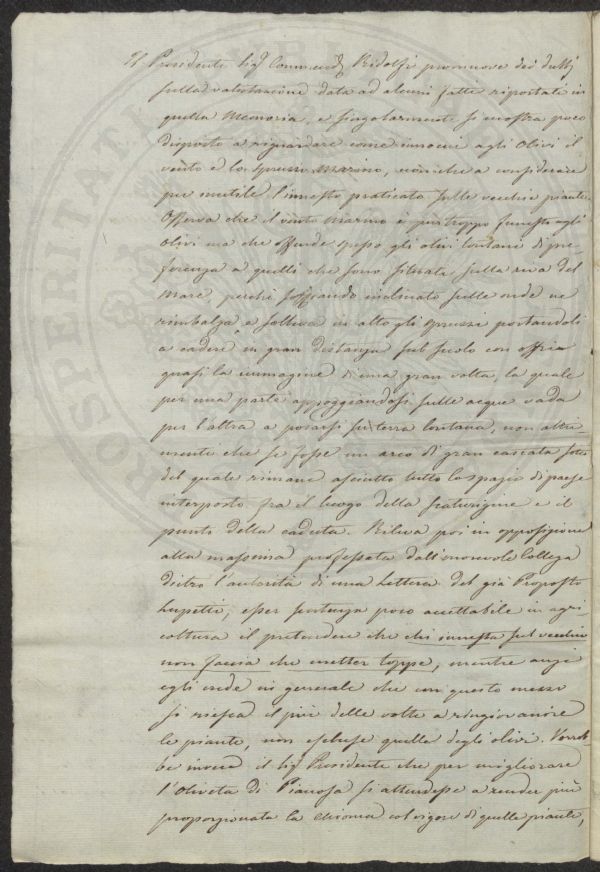 Il Presidente Sig.r Commend.r Ridolfi promuove dei dubbj
sulla valutazione data ad alcuni fatti riportati in
quella Memoria, e singolarmente si mostra poco
disposto a riguardare come innocui agli Olivi il
vento e lo spruzzo Marino, non che a considerare
per inutile l'innesto praticato sulle vecchie piante.
Osserva che il vento Marino è purtroppo funesto agli
Olivi ma che offende spesso gli olivi lontani di pre-
ferenza a quelli che sono situati sulla riva del
Mare, perchè soffiando inclinato sulle onde ne
rimbalza e solleva in alto gli spruzzi portandoli
a cadere in gran distanza sul suolo con offrir
quasi la immagine di una gran volta, la quale
per una parte appoggiandosi sulle acque vada
per l'altra a posarsi su terra lontana, non altri-
menti che se fosse un arco di gran cascata sotto
del quale rimane asciutto tutto lo spazio di paese
interposto fra il luogo della scaturigine e il
punto della caduta. Rileva poi in opposizione
alla massima professata dall'onorevole Collega
dietro l'autorità di una Lettera del già Proposto
Lupetti, esser sentenza poco accettabile in agri-
coltura il pretendere che chi innesta sul vecchio
non faccia che metter toppe, mentre anzi
egli vede in generale che con questo mezzo
si riesca il più delle volte a ringiovanire
le piante, non escluse quelle degli olivi. Vorreb-
be invece il Sig.r Presidente che per migliorare
l'Oliveta di Pianosa si attendesse a render più
proporzionata la chioma col vigore di quelle piante,
PROSPERITATI